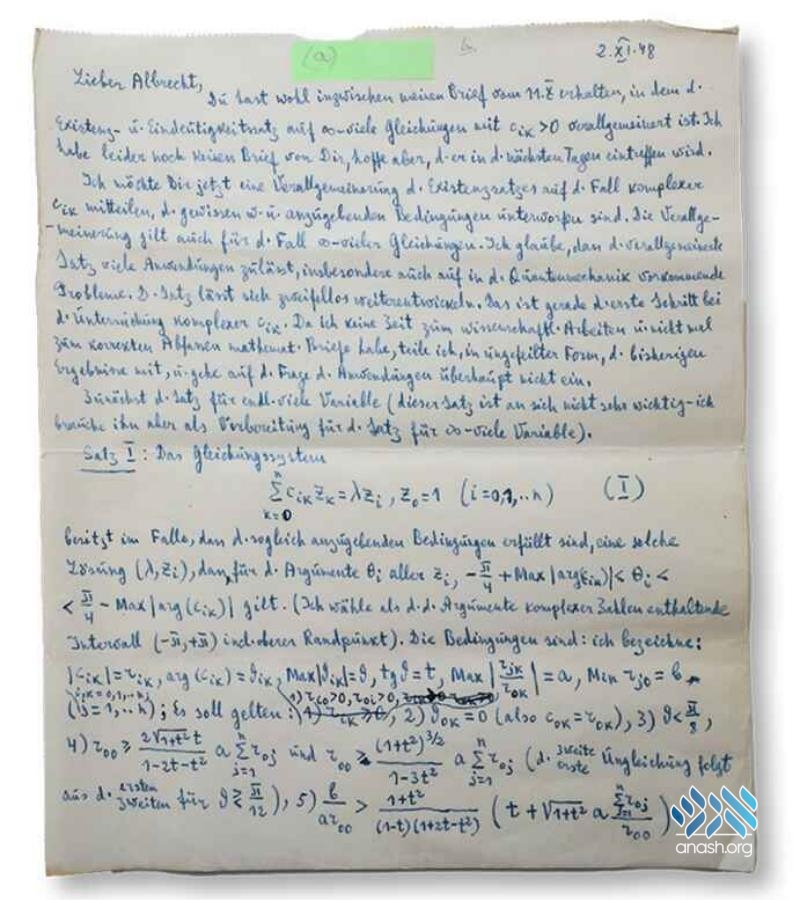 (a)
2.XI.48
Lieber Albrecht,
Du hast wohl inzwischen meinen Brief vom 11.X erhalten, in dem d.
Existenz- u. Eindeutigkeitssatz auf ∞-viele Gleichungen mit c_{ik} > 0 verallgemeinert ist. Ich
habe leider noch keinen Brief von Dir, hoffe aber, d. er in d. nächsten Tagen eintreffen wird.
Ich möchte Dir jetzt eine Verallgemeinerung d. Existenzsatzes auf d. Fall komplexer
c_{ik} mitteilen, d. gewissen w. u. anzugebenden Bedingungen unterworfen sind. Die Verallge-
-meinerung gilt auch für d. Fall ∞-vieler Gleichungen. Ich glaube, dan d. verallgemeinerte
Satz viele Anwendungen zulässt, insbesondere auch auf in d. Quantenmechanik vorkommende
Probleme. D. Satz lässt sich zweifellos weiterentwickeln. Das ist gerade d. erste Schritt bei
d. Untersuchung komplexer c_{ik}. Da ich keine Zeit zum wissenschaftl. Arbeiten u. nicht mal
zum korrekten Abfassen mathemat. Briefe habe, teile ich, in ungefeilter Form, d. bisherigen
Ergebnisse mit, u. gehe auf d. Frage d. Anwendungen überhaupt nicht ein.
Zunächst d. Satz für endl.-viele Variable (dieser Satz ist an sich nicht sehr wichtig - ich
brauche ihn aber als Vorbereitung für d. Satz für ∞-viele Variable).
Satz I: Das Gleichungssystem
\sum_{k=0}^{n} c_{ik} z_k = λ z_i, z_0 = 1 (i = 0,1,..n) (I)
besitzt im Falle, dan d. sogleich anzugebenden Bedingungen erfüllt sind, eine solche
Lösung (λ, z_i), dan, für d. Argumente θ_i aller z_i, -π/4 + Max|arg(c_{ik})| < θ_i <
< π/4 - Max|arg(c_{ik})| gilt. (Ich wähle als d. d. Argumente komplexer Zahlen enthaltende
Intervall (-π, +π) incl. oberer Randpunkt). Die Bedingungen sind: ich bezeichne:
|c_{ik}| = r_{ik}, arg(c_{ik}) = ϑ_{ik}, Max|ϑ_{ik}| = ϑ, tg ϑ = t, Max |r_{jk}/r_{0k}| = a, Min r_{j0} = b
i,k = 0,1,..n; 1) r_{i0} > 0, r_{0i} > 0,
(j = 1,..n); Es soll gelten: 2) ϑ_{0k} = 0 (also c_{0k} = r_{0k}), 3) ϑ < π/8,
4) r_{00} ≥ \frac{2\sqrt{1+t^2} t}{1-2t-t^2} a \sum_{j=1}^{n} r_{0j} und r_{00} ≥ \frac{(1+t^2)^{3/2}}{1-3t^2} a \sum_{j=1}^{n} r_{0j} (d. zweite erste Ungleichung folgt
aus d. ersten zweiten für ϑ ≷ π/12), 5) \frac{b}{a r_{00}} > \frac{1+t^2}{(1-t)(1+2t-t^2)} (t + \sqrt{1+t^2} a \frac{\sum_{j=1}^{n} r_{0j}}{r_{00}})
anash.org